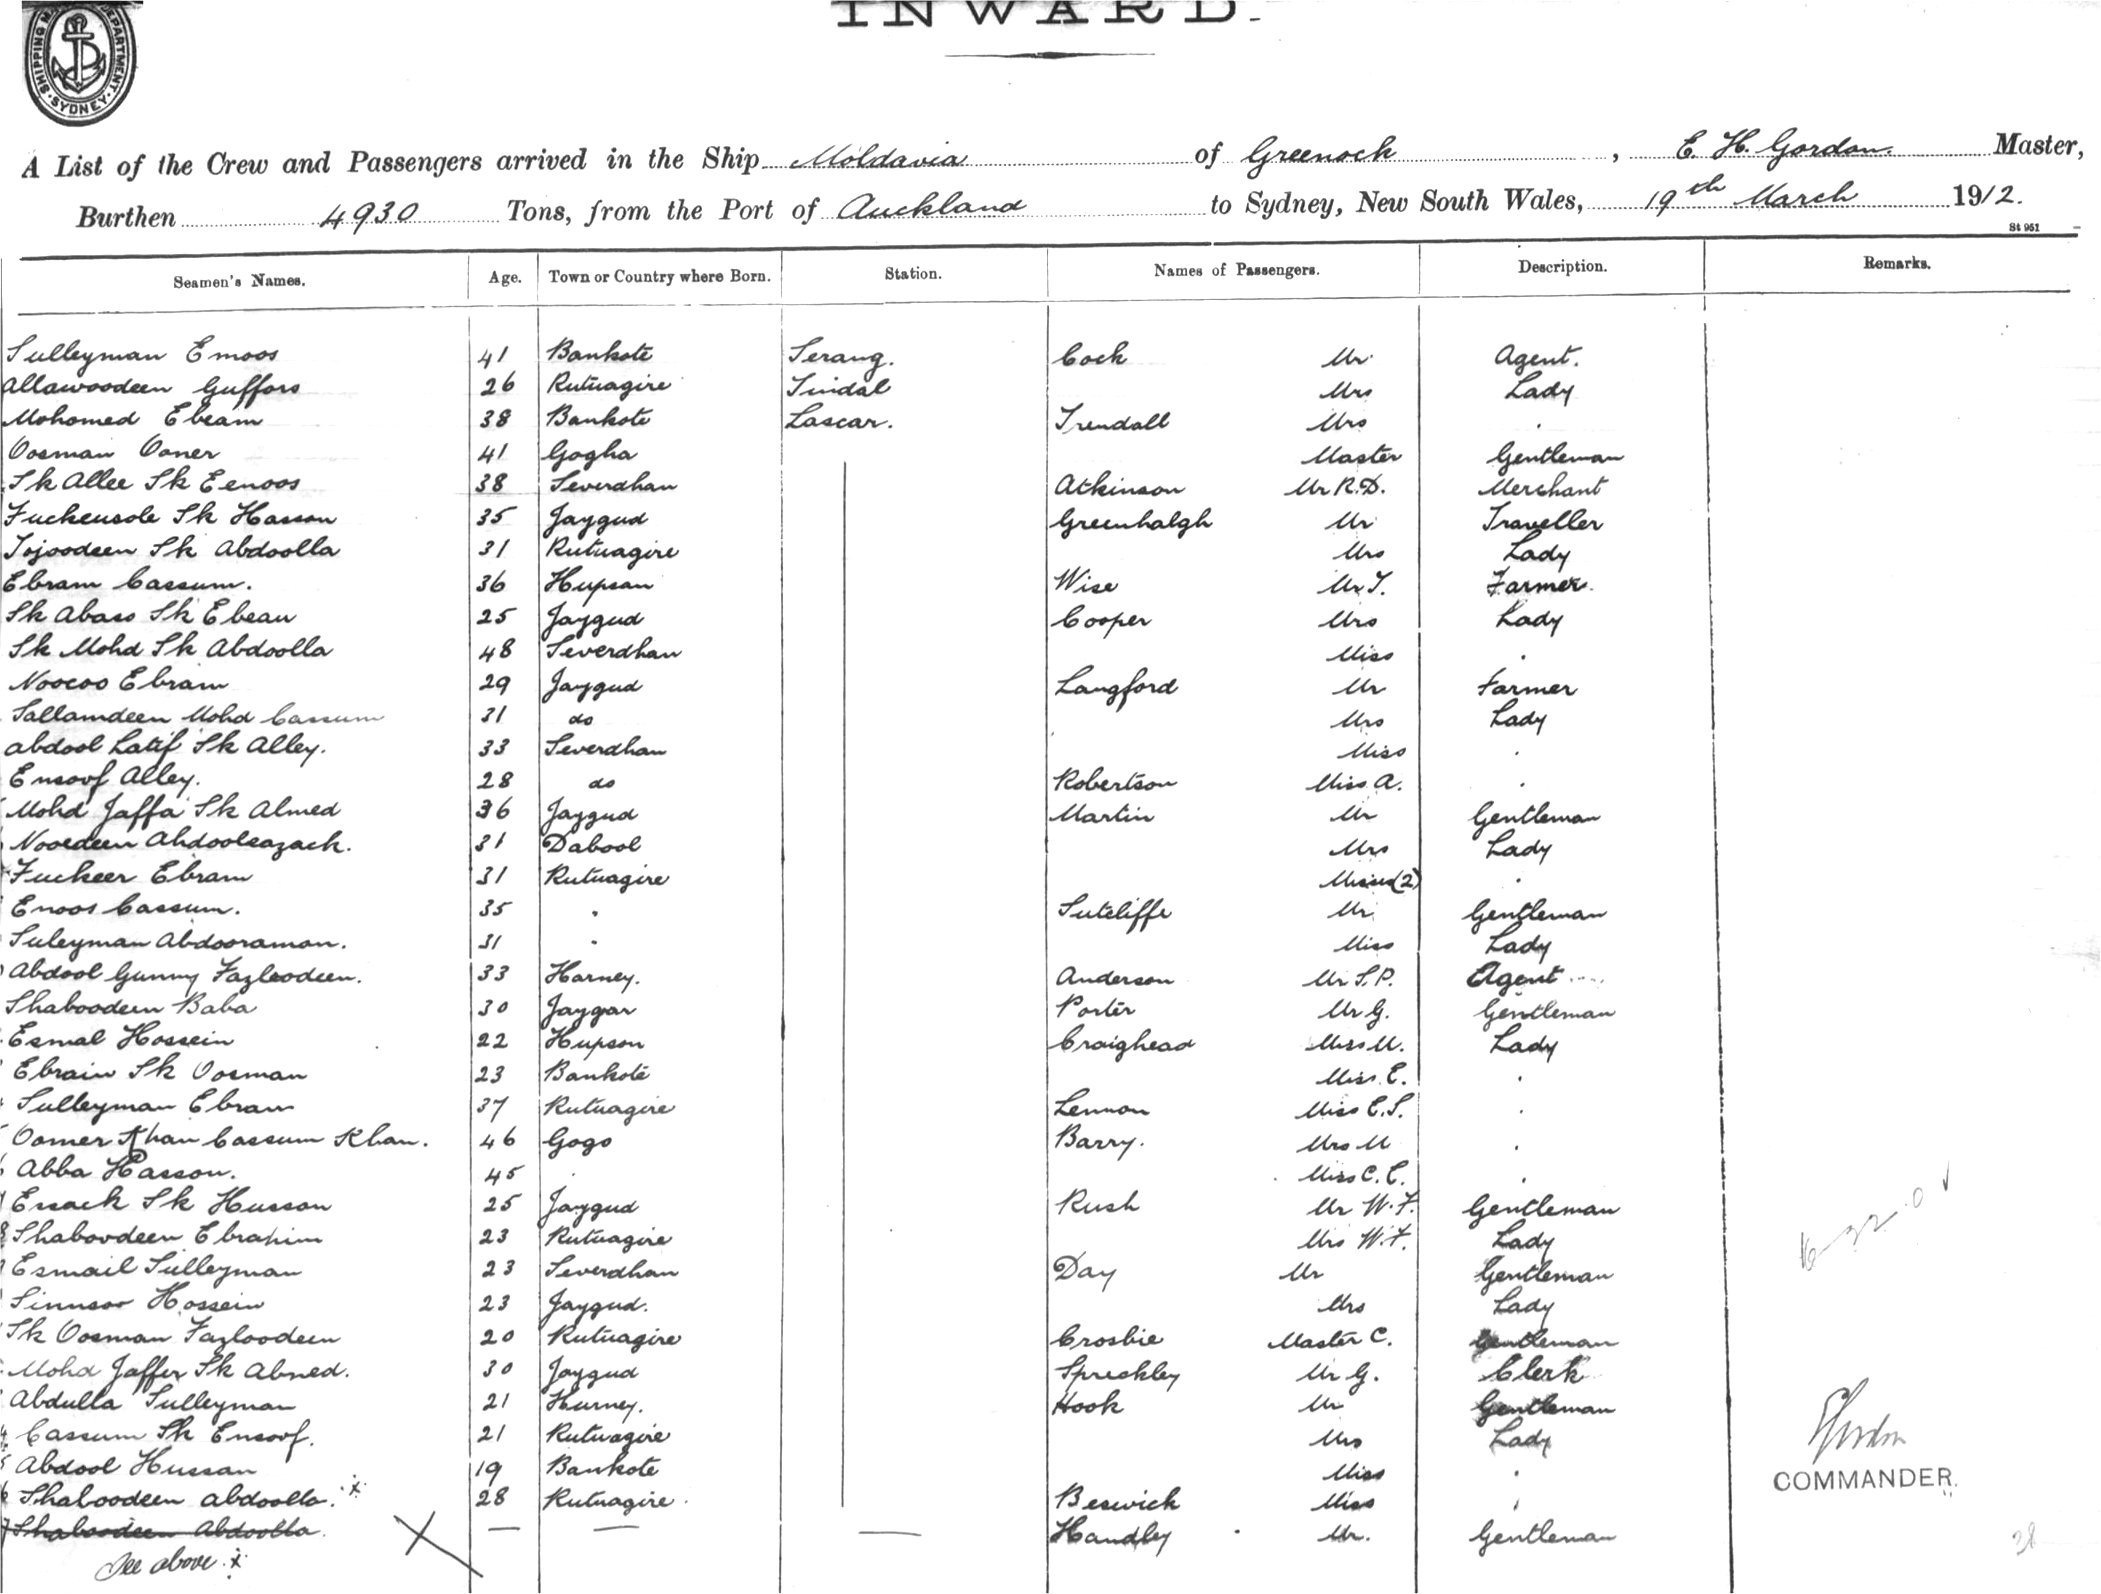 SHIPPING MA DEPARTMENT. SYDNEY.
INWARD.
A List of the Crew and Passengers arrived in the Ship Moldavia of Greenock, E. H. Gordon. Master,
Burthen 4930 Tons, from the Port of Auckland to Sydney, New South Wales, 19th March 1912.
St 951
Seamen's Names. Age. Town or Country where Born. Station. Names of Passengers. Description. Remarks.
Sulleyman Emoos 41 Bankote Serang. Cock Mr Agent.
Allawoodeen Guffors 26 Rutuagire Tindal Mrs Lady
Mohomed Ebram 38 Bankote Lascar. Trendall Mrs "
Oosman Ooner 41 Gogha Master Gentleman
Sk Allee Sk Eenoos 38 Severdhan Atkinson Mr R.D. Merchant
Fuckeusole Sk Hasson 35 Jaygud Greenhalgh Mr Traveller
Tojoodeen Sk Abdoolla 31 Rutuagire Mrs Lady
Ebram Cassum. 36 Hupsan Wise Mr T. Farmer.
Sk Abass Sk Ebrau 25 Jaygud Cooper Mrs Lady
Sk Mohd Sk Abdoolla 48 Severdhan Miss "
Noocoo Ebram 29 Jaygud Langford Mr Farmer
Sallamdeen Mohd Cassum 31 do Mrs Lady
Abdool Latif Sk Alley. 33 Severdhan Miss "
Ensoof Alley. 28 do Robertson Miss A. "
Mohd Jaffa Sk Almed 36 Jaygud Martin Mr Gentleman
Nooedeen Ahdooleazack. 31 Dabool Mrs Lady
Fuckeer Ebram 31 Rutuagire Misses (2) "
Enoos Cassum. 35 " Sutcliffe Mr Gentleman
Suleyman Abdooraman. 31 " Miss Lady
Abdool Gunny Fazleodeen. 33 Harney. Anderson Mr S.P. Agent
Shaboodeen Baba 30 Jaygar Porter Mr G. Gentleman
Esmal Hossein 22 Hupson Craighead Miss M. Lady
Ebrain Sk Oosman 23 Bankote Miss E. "
Sulleyman Ebram 37 Rutuagire Lennon Miss E.S. "
Oomer Khan Cassum Khan. 46 Gogo Barry. Mrs M "
Abba Hasson. 45 " Miss C.E. "
Essack Sk Husson 25 Jaygud Rush Mr W.F. Gentleman
Shaboodeen Ebrahim 23 Rutuagire Mrs W.F. Lady
Esmail Sulleyman 23 Severdhan Day Mr Gentleman
Sinnsoo Hossein 23 Jaygud. Mrs Lady
Sk Oosman Fazloodeen 20 Rutuagire Crosbie Master C. Gentleman
Mohd Jaffer Sk Ahmed. 30 Jaygud Spreckley Mr G. Clerk
Abdulla Sulleyman 21 Hurney. Hook Mr Gentleman
Cassum Sk Ensoof. 21 Rutuagire Mrs Lady
Abdool Hussan 19 Bankote Miss "
Shaboodeen Abdoolla. x 28 Rutuagire. Beswick Miss "
Shaboodeen Abdoolla. X — — — Handley Mr. Gentleman
See above x
Gordon
COMMANDER.
38